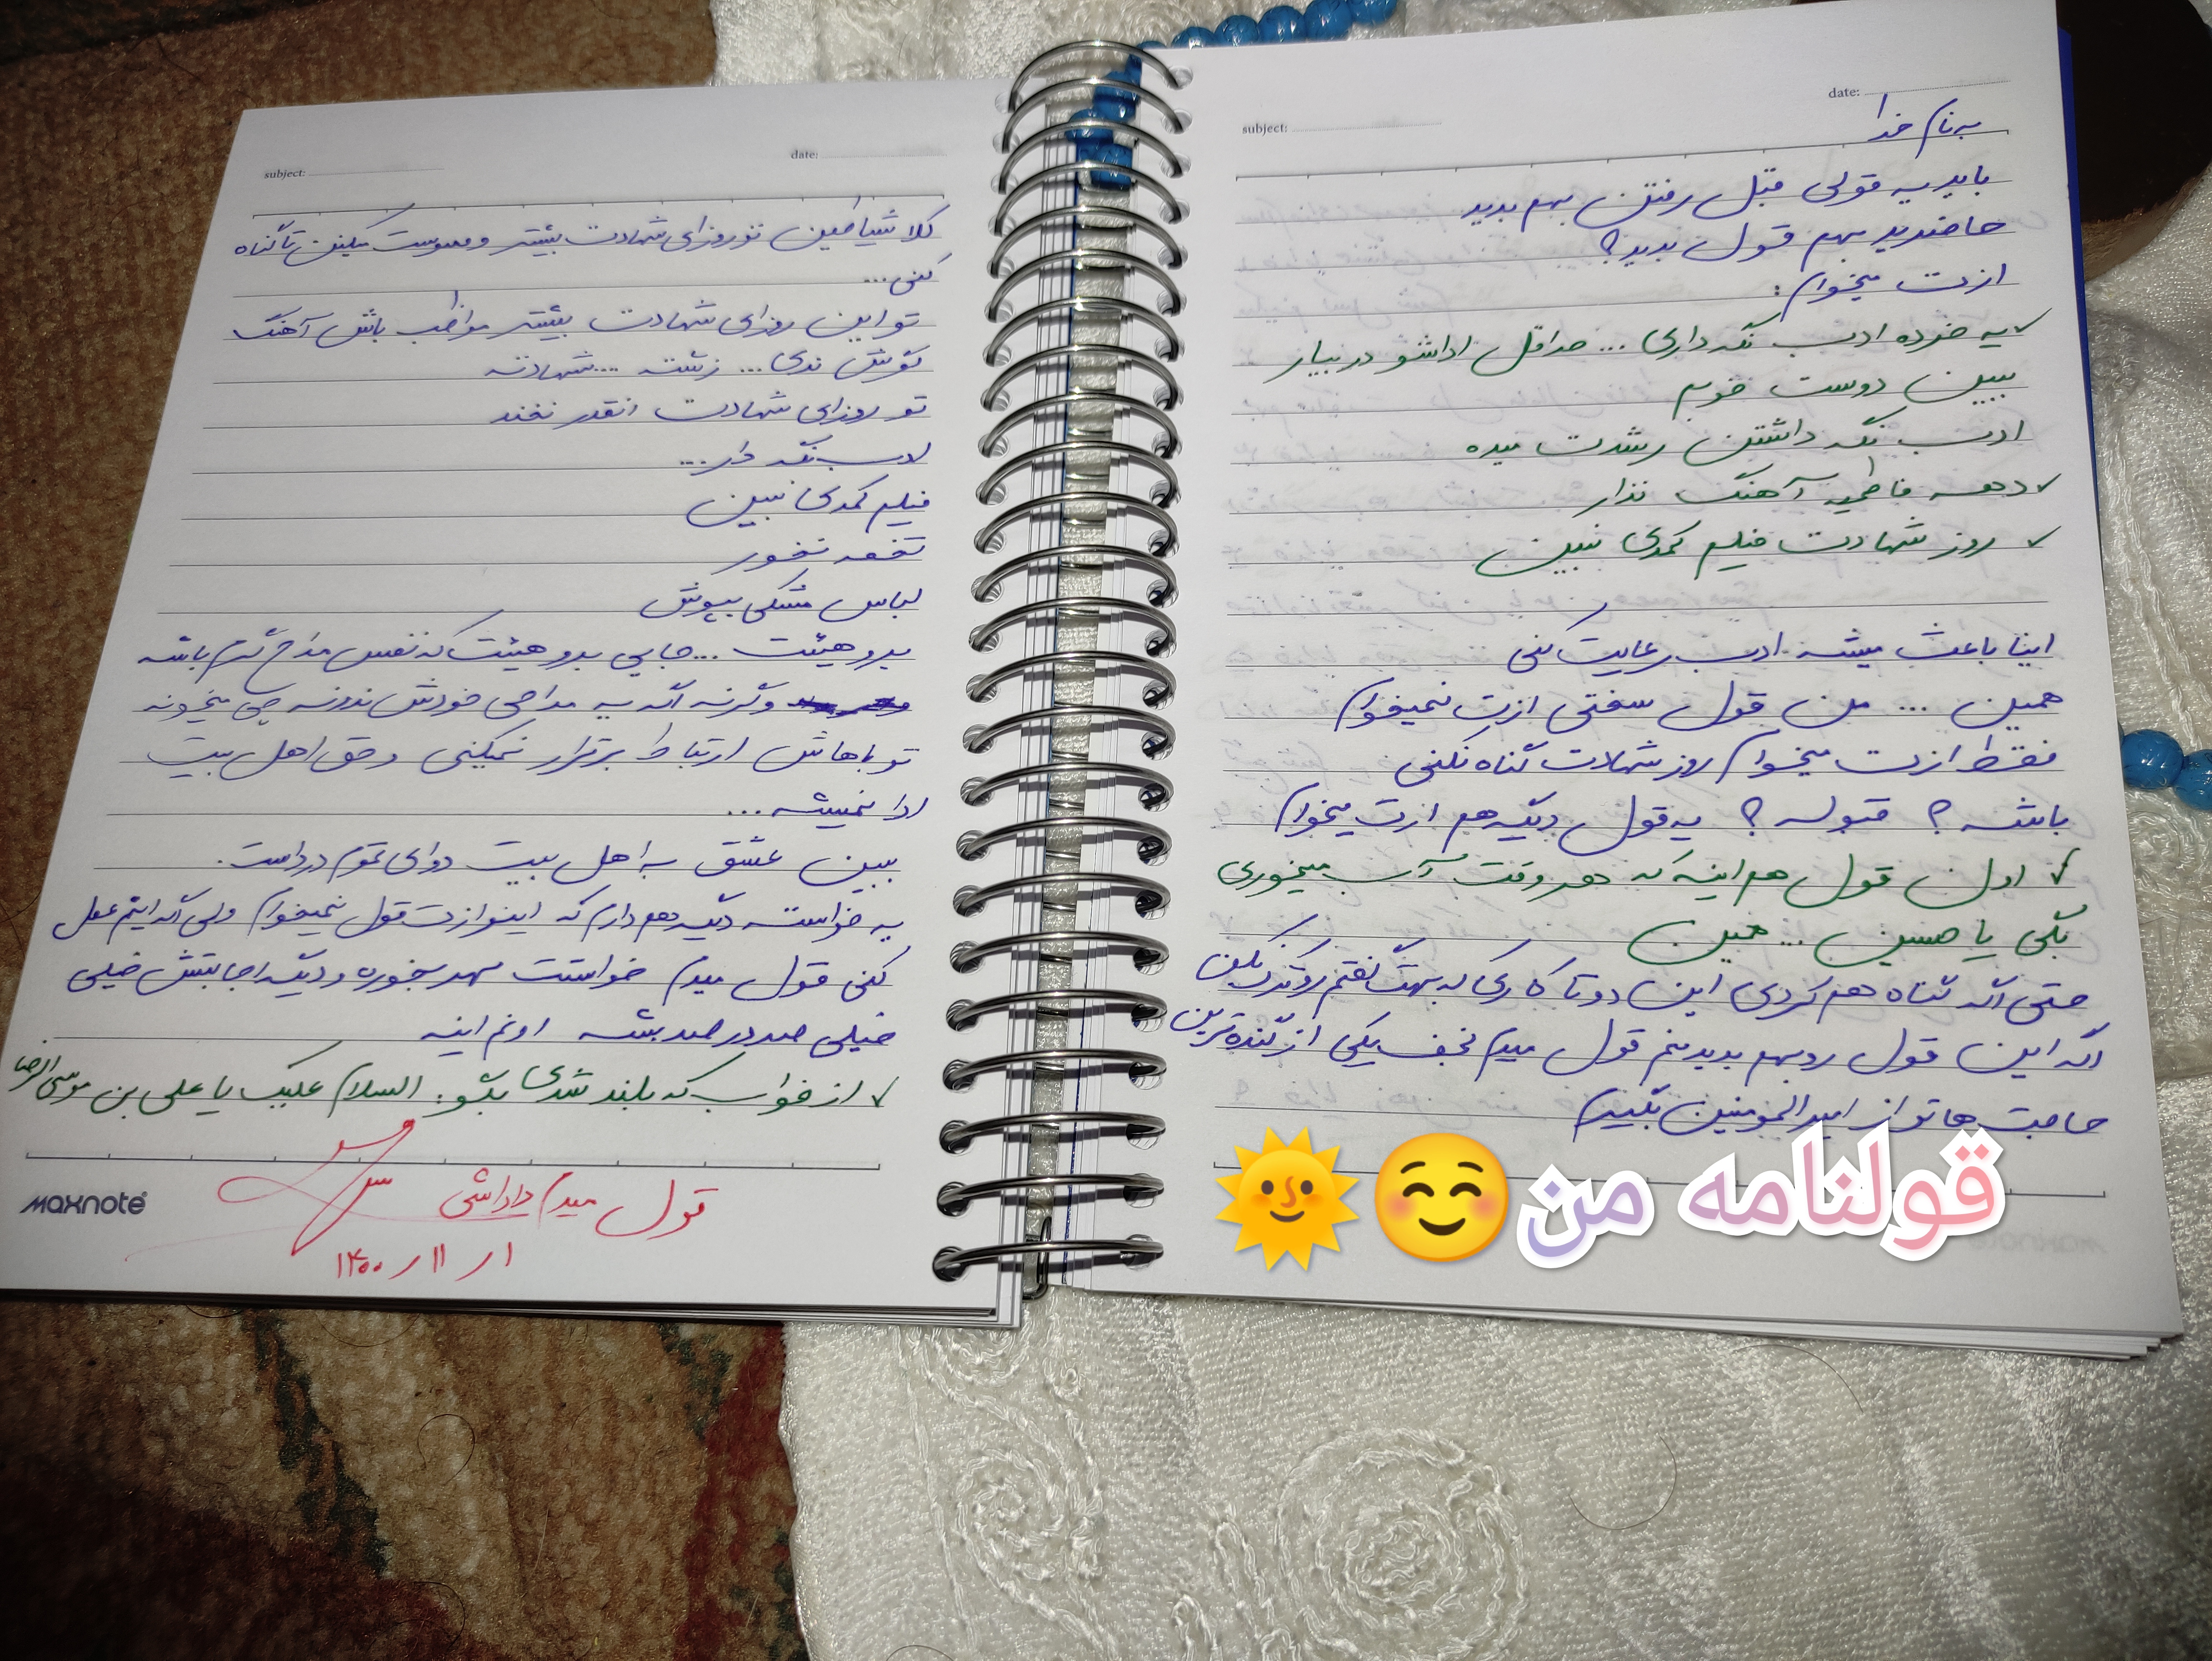 date:
subject:
به نام خدا
باید یه قولی قبل رفتن بهم بدید
حاضرید بهم قول بدید؟
ازت میخوام:
✓ یه خرده ادب نگه داری ... حداقل اداشو در بیار
ببین دوست خوبم
ادب نگه داشتن رشدت میده
✓ دهه فاطمیه آهنگ نذار
✓ روز شهادت فیلم کمدی نبین
اینا باعث میشه ادب رعایت کنی
همین ... من قول سختی ازت نمیخوام
فقط ازت میخوام روز شهادت گناه نکنی
باشه ؟ قبوله ؟ یه قول دیگه هم ازت میخوام
✓ اون قول هم اینه که هر وقت آب میخوری
بگی یا حسین ... همین
حتی اگه گناه هم کردی این دوتا کاری که بهت گفتم رو ترک نکن
اگه این قول رو بهم بدید منم قول میدم نجف یکی از گنده ترین
حاجت هاتو از امیرالمومنین بگیرم
قولنامه من☺️🌞
subject:
date:
کلا شیاطین تو روزای شهادت بیشتر وسوست میکنن تا گناه
کنی...
تو این روزای شهادت بیشتر مواظب باش آهنگ
گوش ندی... زشته ... شهادته
تو روزای شهادت انقدر نخند
ادب نگه دار...
فیلم کمدی نبین
تخمه نخور
لباس مشکی بپوش
برو هیئت ... جایی برو هیئت که نفس مداح گرم باشه
وگرنه اگه یه مداحی خودش ندونه چی میخونه
تو باهاش ارتباط برقرار نمیکنی و حق اهل بیت
ادا نمیشه ...
ببین عشق به اهل بیت دوای تموم درداست.
یه خواسته دیگه هم دارم که اینو ازت قول نمیخوام ولی اگه اینم عمل
کنی قول میدم خواستت مهر بخوره و دیگه اجابتش خیلی
خیلی صد در صد بشه اونم اینه
✓ از خواب که بلند شدی بگو: السلام علیک یا علی بن موسی الرضا
قول میدم داداشی
۱۴۰۰/۱۱/۱
Maxnote